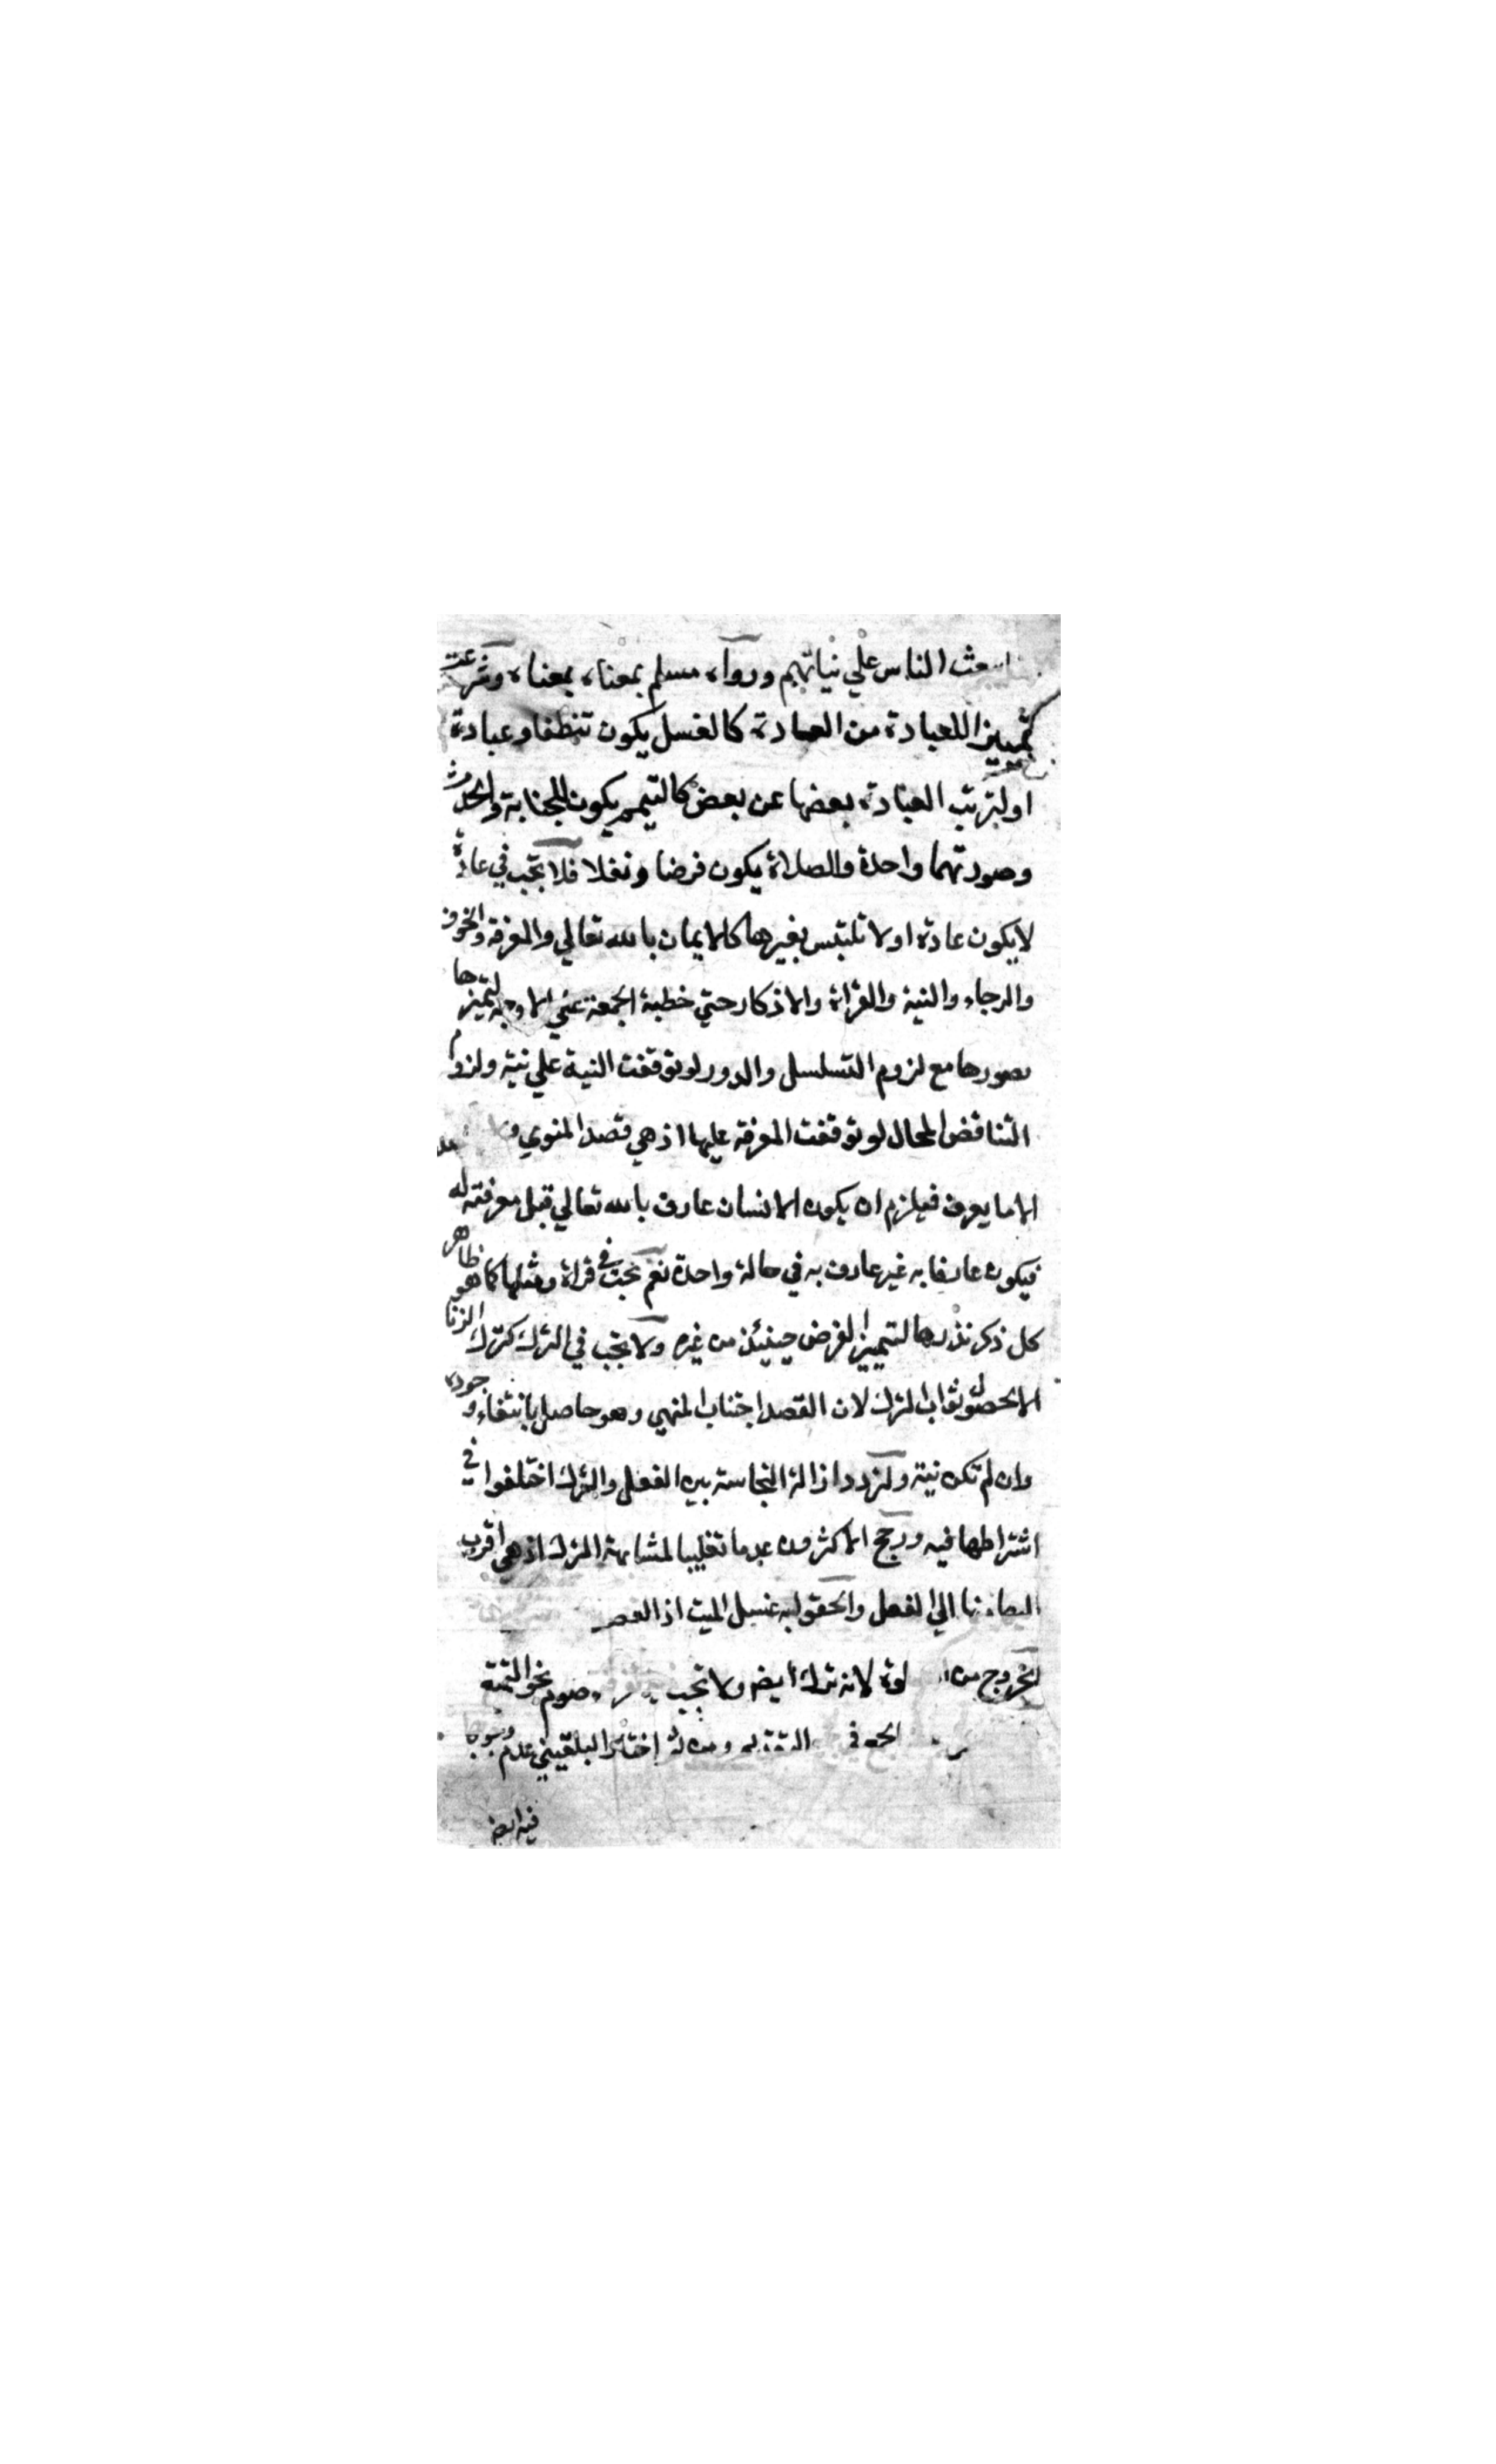 يبعث الناس علي نياتهم ورواه مسلم بمعناه بمعناه وشرعت
تمييزا للعبادة من العادة كالغسل يكون تنظفا وعبادة
او لترتب العبادة بعضها عن بعض كالتيمم يكون للجنابة والحدث
وصورتهما واحدة والصلاة يكون فرضا ونفلا فلا تجب في عادة
لا يكون عادة او لا تلتبس بغيرها كالايمان بالله تعالي والمعرفة والخوف
والرجاء والنية والقراة والاذكار حتي خطبة الجمعة علي الاوجه لتميزها
بصورها مع لزوم التسلسل والدور لو توقفت النية علي نية ولزوم
التناقض المحال لو توقفت المعرفة عليها اذ هي قصد المنوي ولا
الا ما يعرف فيلزم ان يكون الانسان عارف بالله تعالي قبل معرفته له
فيكون عارفا به غير عارف به في حالة واحدة نعم تجب في قراة ومثلها كما هو ظاهر
كل ذكر نذرها لتمييز الفرض حينئذ من غيره ولا تجب في الترك كترك الزنا
الا لحصول ثواب الترك لان القصد اجتناب المنهي وهو حاصل بانتفاء وجوده
وان لم تكن نية ولتردد ازالة النجاسة بين الفعل والترك اختلفوا في
اشتراطها فيه ورجح الاكثرون عدمها تغليبا لمشابهة الترك اذ هي اقرب
اليها منها الي الفعل والحقوا به غسل الميت اذ القصد
الخروج من لانه ترك ايضا ولا تجب صوم نحو التمتع
الحج في ومن اختار البلقيني عدم وجوبها
فيه ايضا